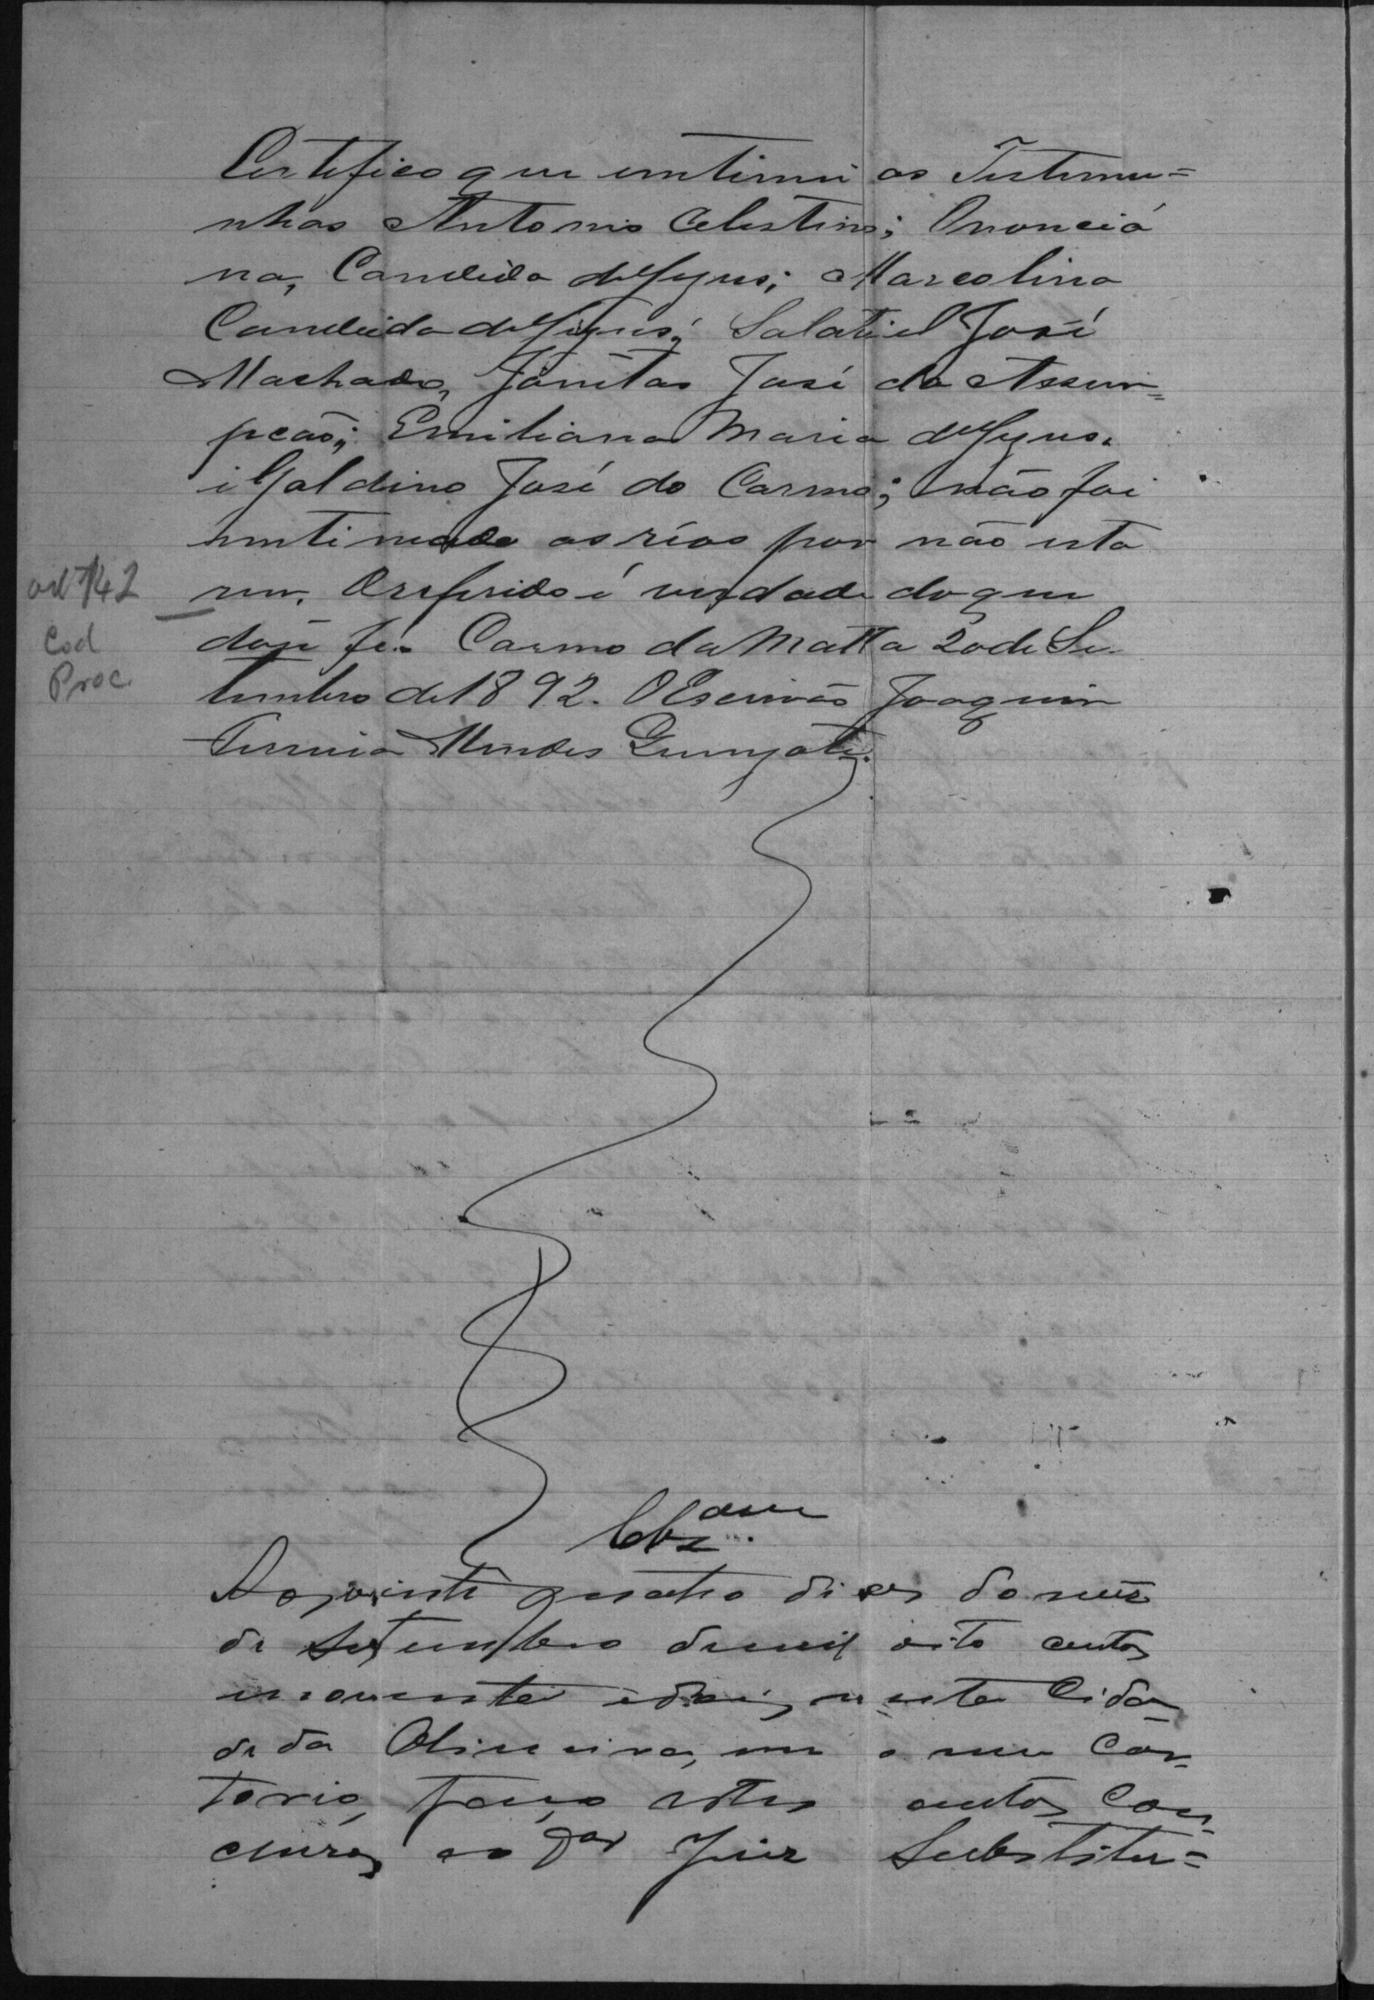 Certifico que imtimei as Testemu=
nhas Antonio Celestino; Ononciá
na, Candida de Jesus; Marcolina
Candida de Jesus; Salatiel José
Machado, Jonitas José da Assum=
pcão; Emiliana Maria de Jesus.
i Galdino José do Carmo; não foi
imtimado os réos por não esta
rem. O referido é verdade do que
dou fé. Carmo da Matta 20 de Se-
tembro de 1892. O Escrivão Joaquim
Ferreira Mendes
art 142
Cod
Proc.
Clsam
Aos vinte quatro dias do mez
de Setembro de mil oito centos
e noventa e dois, nesta Cida
de da Oliveira, em o meu Car
torio, faço estes autos con
cluzos ao Dor Juiz Substitu=